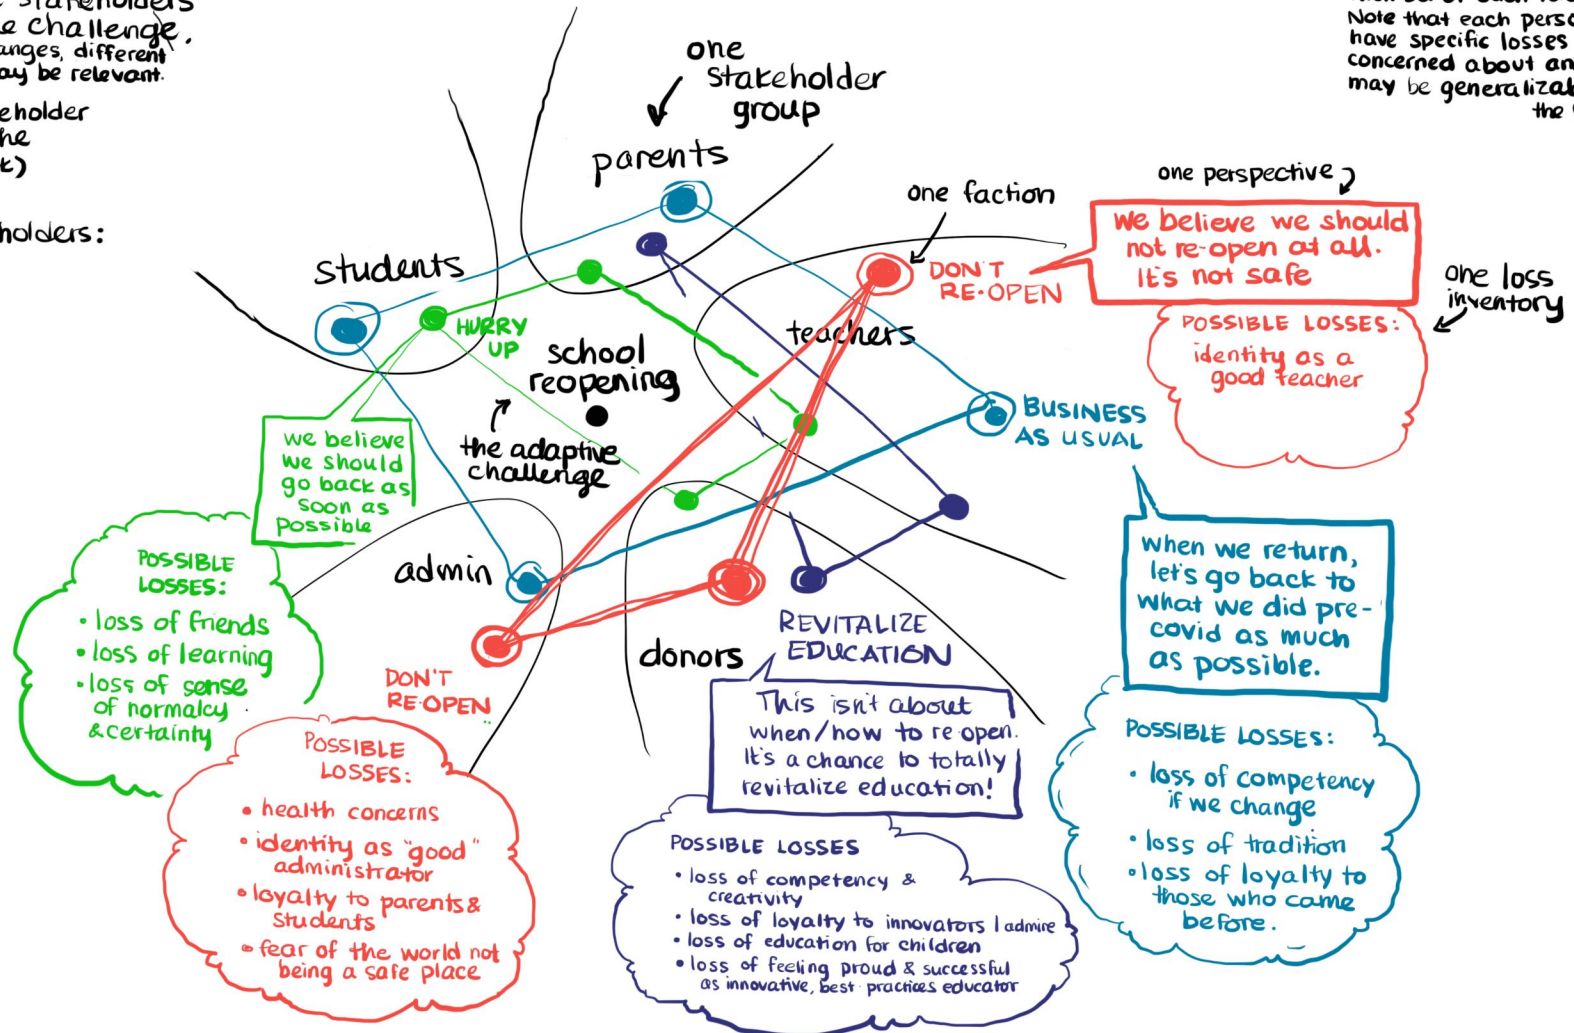 stakeholders
e challenge.
anges, different
ay be relevant.
eholder
he
k)
holders:
Note that each perso
have specific losses
concerned about an
may be generalizab
the
one
stakeholder
group
parents
one faction
one perspective
We believe we should
not re-open at all.
It's not safe
one loss
inventory
DON'T
RE-OPEN
POSSIBLE LOSSES:
identity as a
good teacher
students
HURRY
UP
teachers
school
reopening
the adaptive
challenge
BUSINESS
AS USUAL
we believe
we should
go back as
soon as
possible
POSSIBLE
LOSSES:
• loss of friends
• loss of learning
• loss of sense
of normalcy
& certainty
admin
DON'T
RE-OPEN
POSSIBLE
LOSSES:
• health concerns
• identity as "good"
administrator
• loyalty to parents &
students
• fear of the world not
being a safe place
donors
REVITALIZE
EDUCATION
This isn't about
when/how to re-open.
It's a chance to totally
revitalize education!
POSSIBLE LOSSES
• loss of competency &
creativity
• loss of loyalty to innovators I admire
• loss of education for children
• loss of feeling proud & successful
as innovative, best practices educator
when we return,
let's go back to
what we did pre-
covid as much
as possible.
POSSIBLE LOSSES:
• loss of competency
if we change
• loss of tradition
• loss of loyalty to
those who came
before.